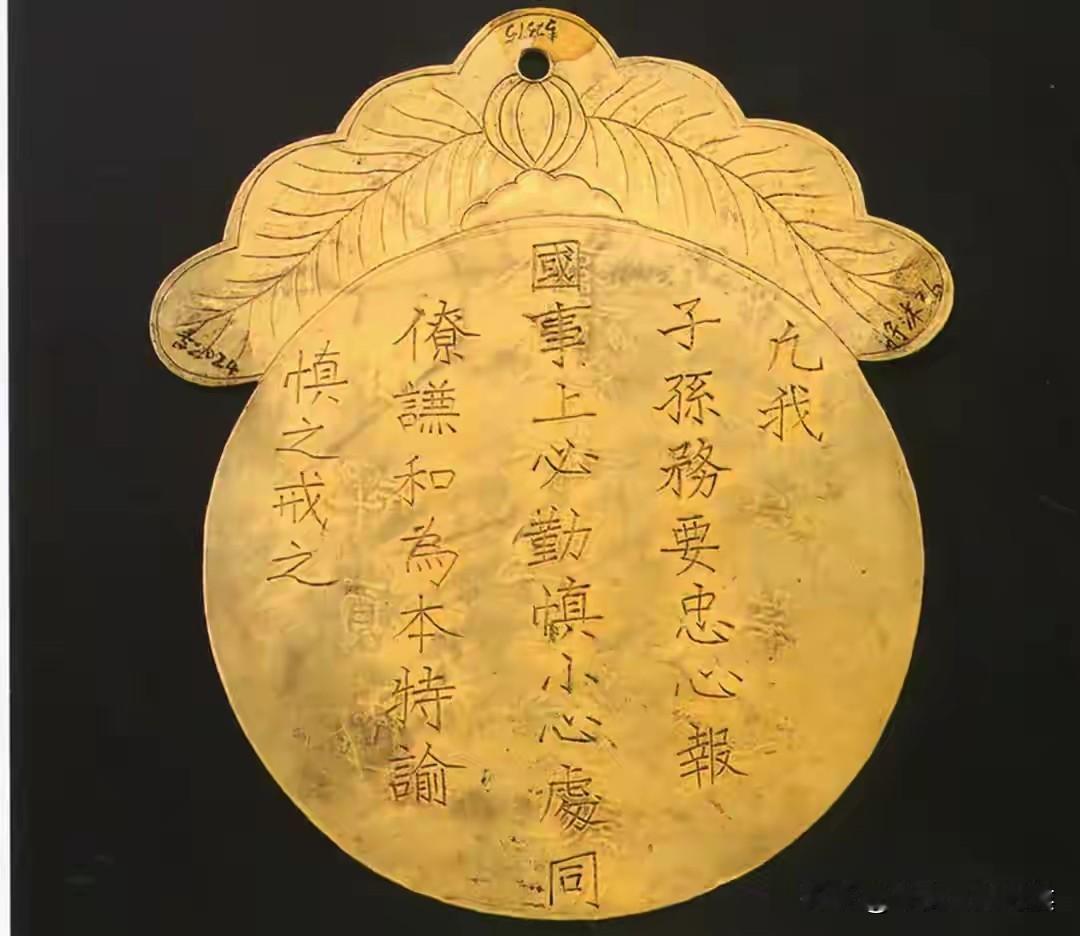 凢我
子孫務要忠心報
國事上必勤慎小心處同
僚謙和為本特諭
慎之戒之